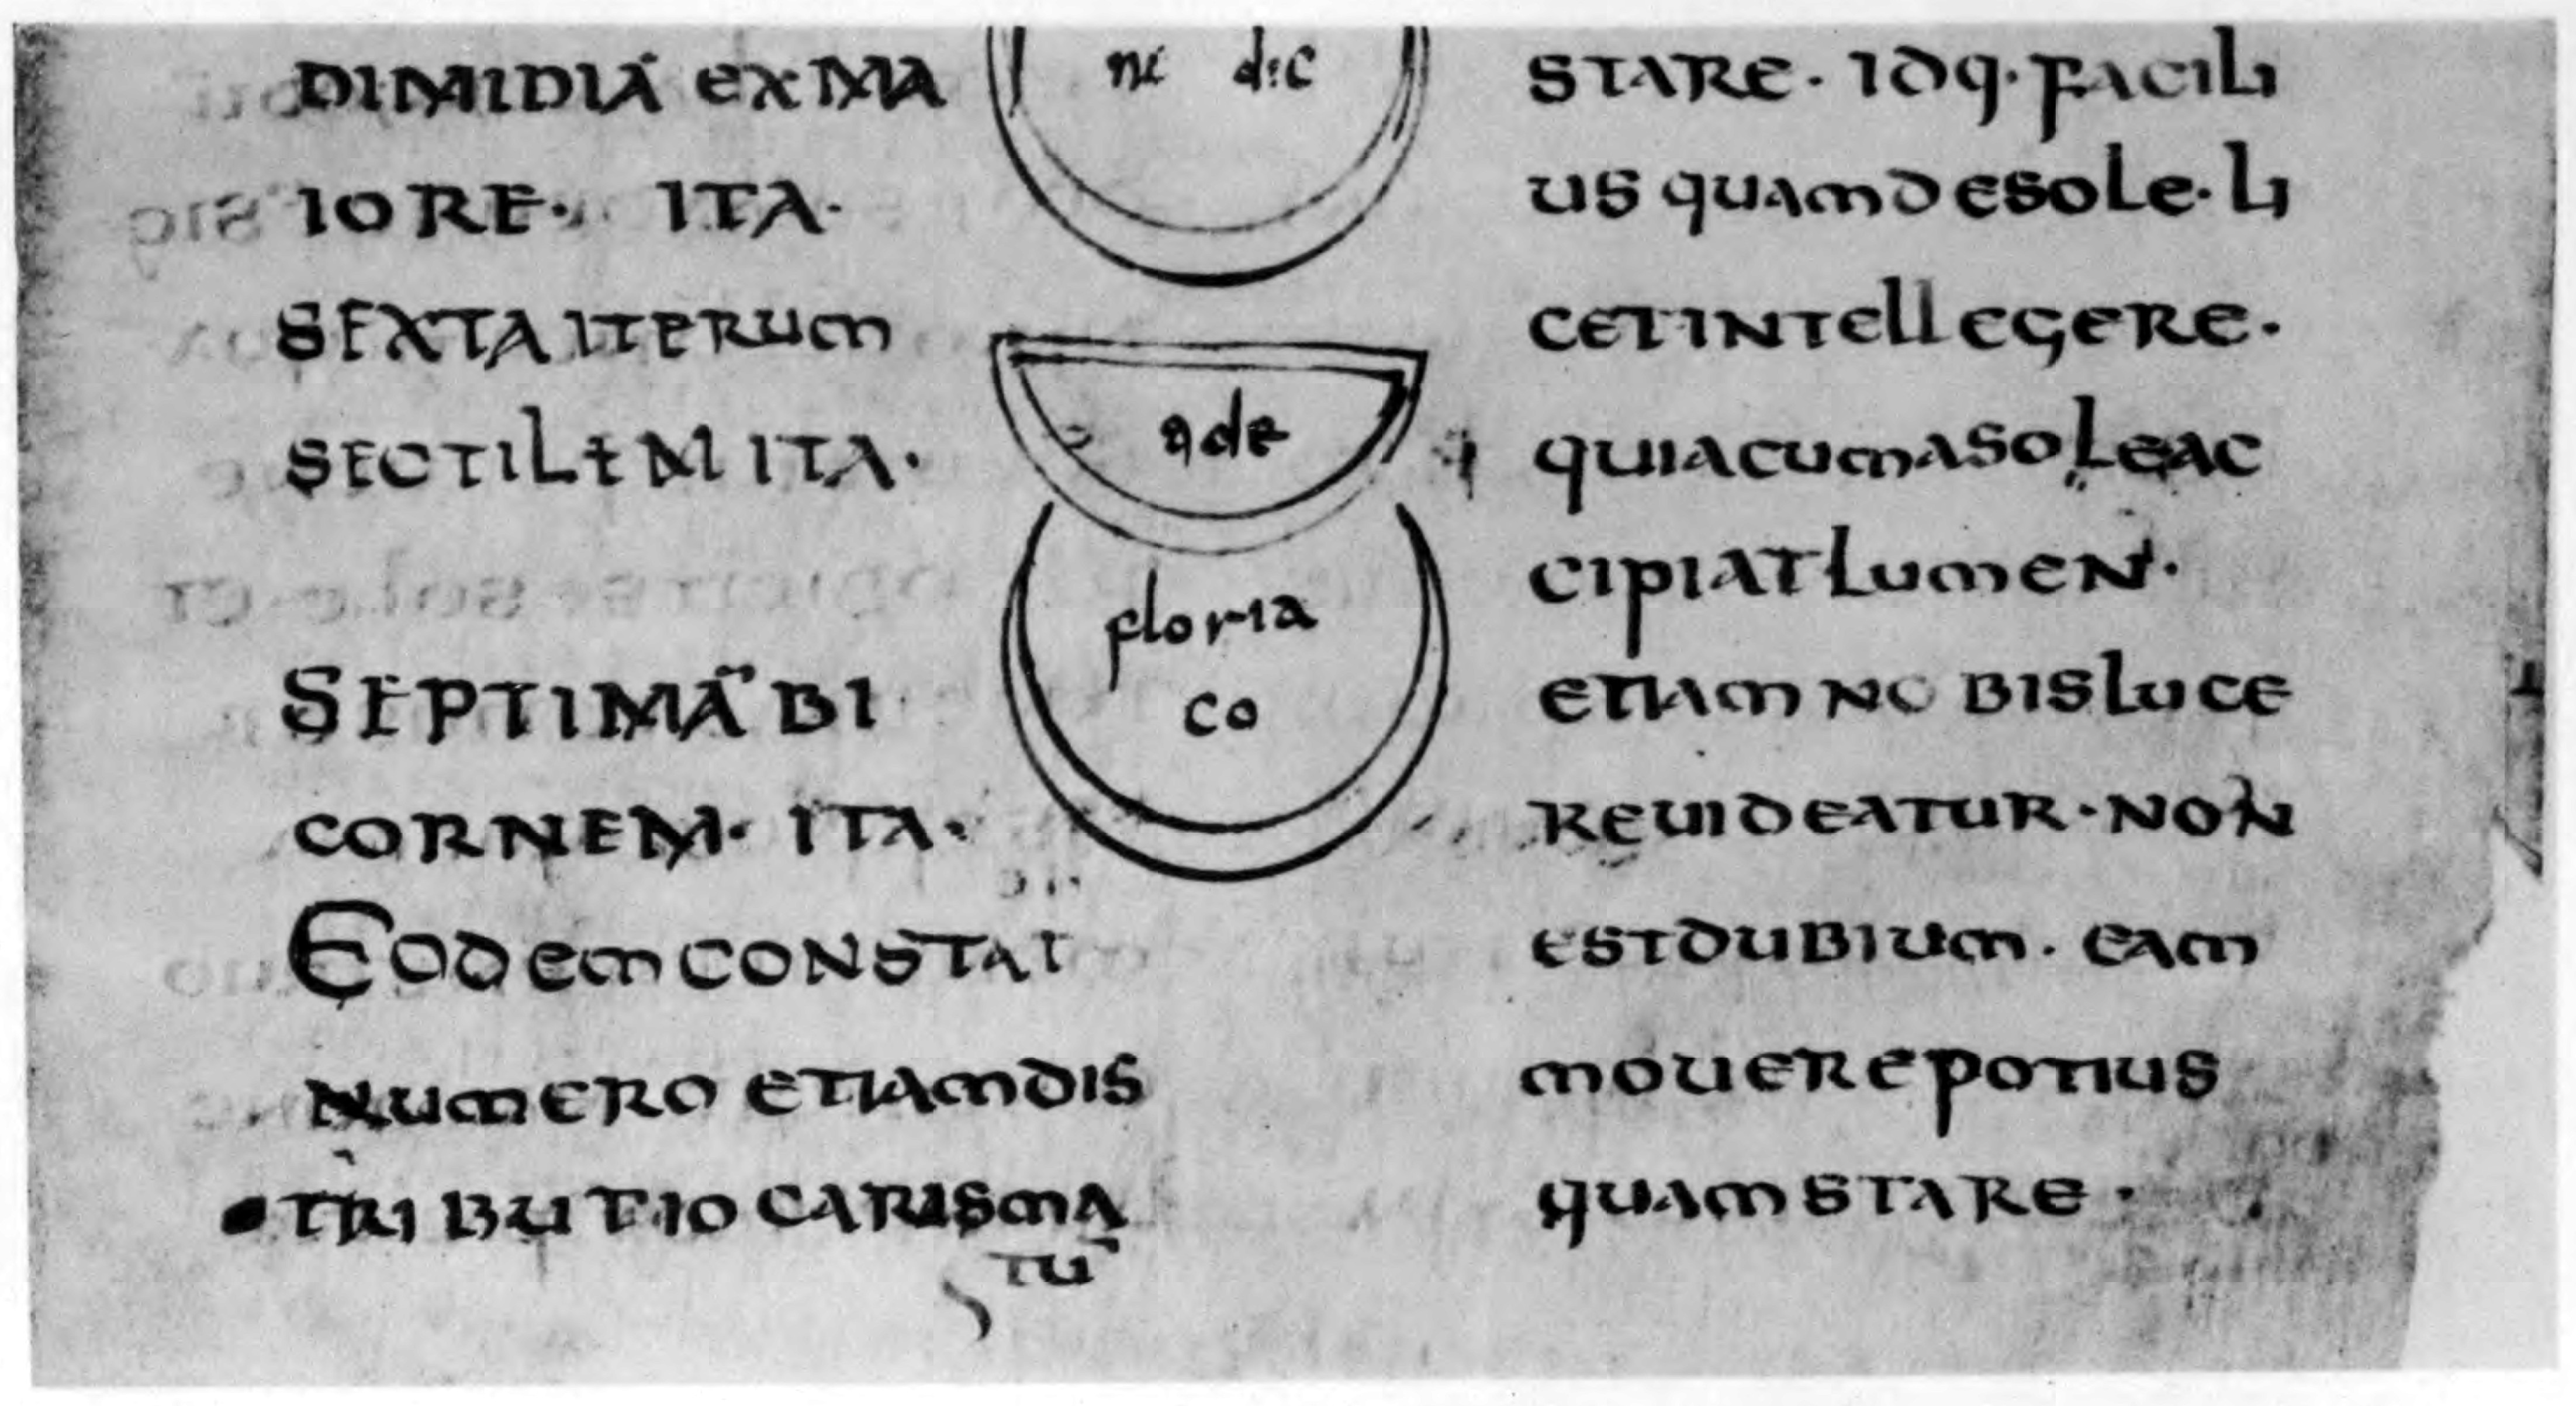 DIMIDIĀ EX MA
IORE· ITA·
SEXTA ITERUM
SECTILEM ITA·
SEPTIMĀ BI
CORNEM· ITA·
EODEM CONSTAT
NUMERO ETIAM DIS
TRIBUTIO CARISMA
TŪ
ni dic
ade
floria
co
STARE· IDQ· FACILI
US QUAM DE SOLE· LI
CET INTELLEGERE·
QUIA CUM A SOLE AC
CIPIAT LUMEN·
ETIAM NOBIS LUCE
RE UIDEATUR· NON
EST DUBIUM· EAM
MOUERE POTIUS
QUAM STARE·